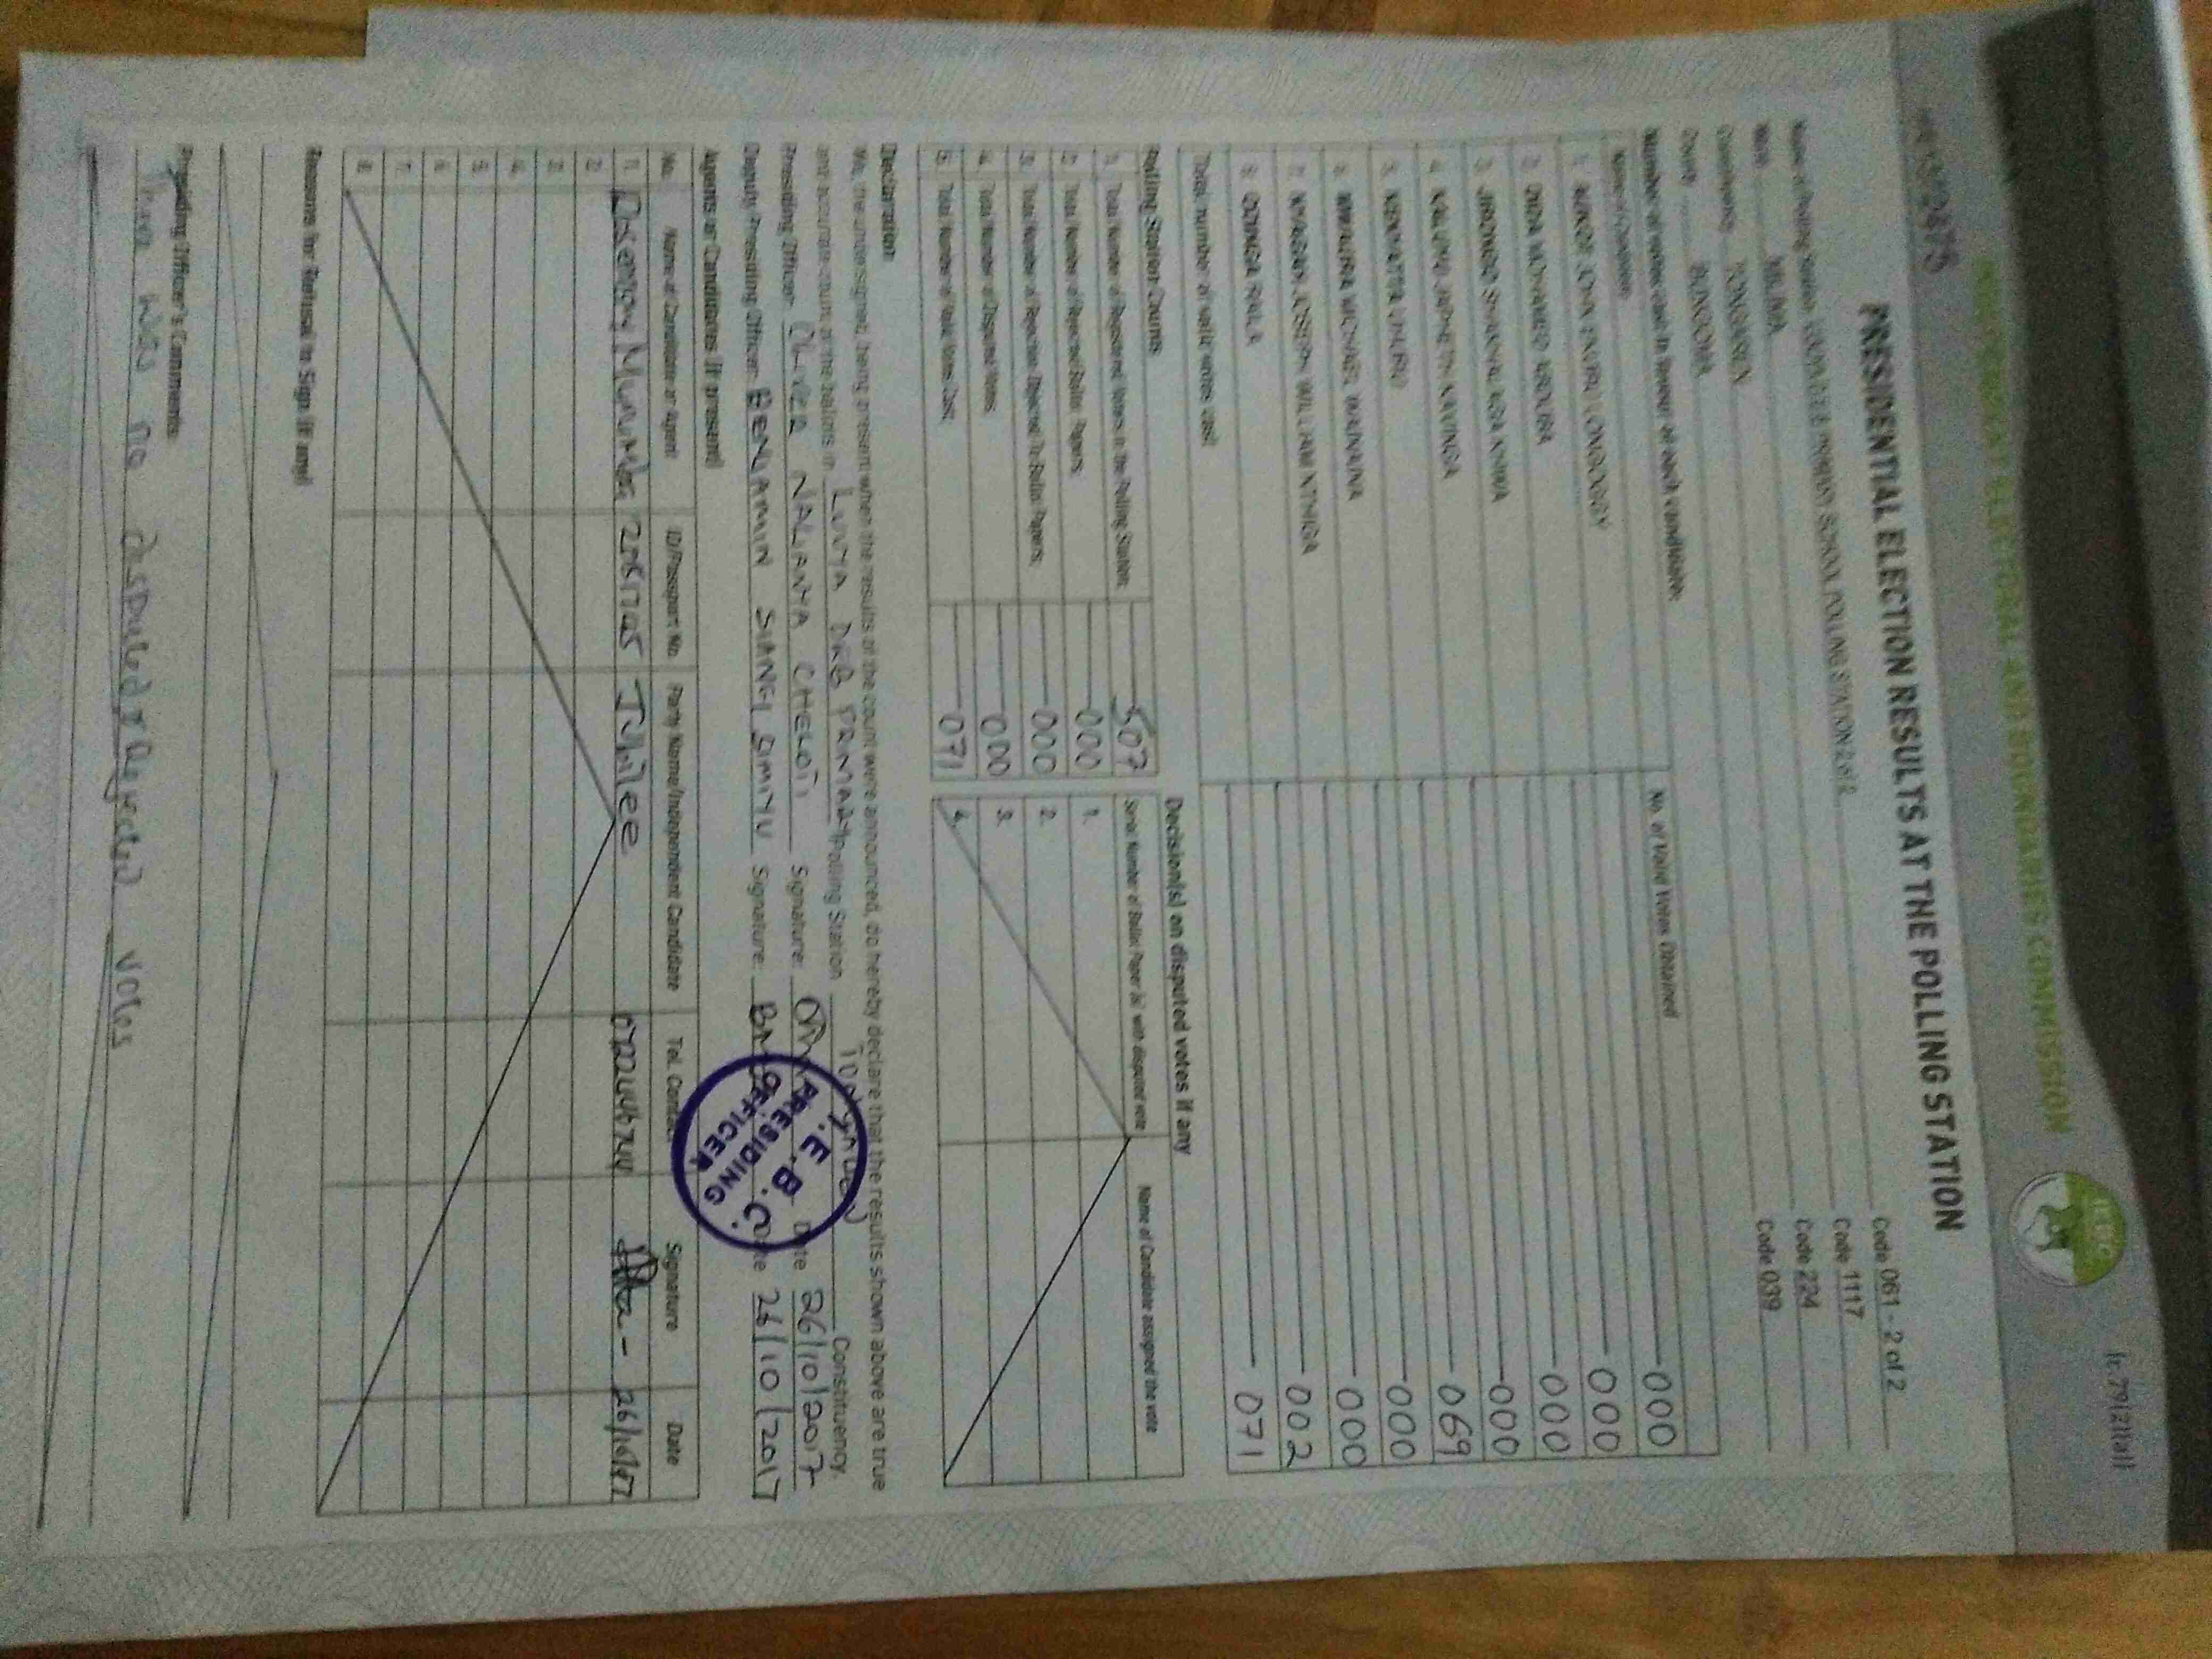 Fr.79(2)(a)I
INDEPENDENT ELECTORAL AND BOUNDARIES COMMISSION
IEBC
PRESIDENTIAL ELECTION RESULTS AT THE POLLING STATION
Name of Polling Station PRIMARY SCHOOL POLLING STATION 2 of 2 Code 061 - 2 of 2
Ward MILIMA Code 1117
Constituency TONGAREN Code 224
County BUNGOMA Code 039
Number of votes cast in favour of each candidate:
Name of Candidate No. of Valid Votes Obtained
1. AUKOT JOHN EKURU LONGOGGY 000
2. DIDA MOHAMED ABDUBA 000
3. JIRONGO SHAKHALAGA KHWA 000
4. KALUYU JAPHETH KAVINGA 000
5. KENYATTA UHURU 069
6. MWAURA MICHAEL WAINAINA 000
7. NYAGAH JOSEPH WILLIAM NTHIGA 000
8. ODINGA RAILA 002
Total number of valid votes cast 071
Polling Station Counts
1. Total Number of Registered Voters in the Polling Station: 507
2. Total Number of Rejected Ballot Papers: 000
3. Total Number of Rejection Objected To Ballot Papers: 000
4. Total Number of Disputed Votes: 000
5. Total Number of Valid Votes Cast: 071
Decision(s) on disputed votes if any
Serial Number of Ballot Paper (s) with disputed vote Name of Candidate assigned the vote
1.
2.
3.
4.
Declaration
We, the undersigned, being present when the results of the count were announced, do hereby declare that the results shown above are true
and accurate count of the ballots in LUUYA DEB PRIMARY Polling Station TONGAREN Constituency.
Presiding Officer: OLIVER NALIANYA CHELOTI Signature: Date 26/10/2017
Deputy Presiding Officer: BENJAMIN SIANGI SIMIYU Signature: Date 26/10/2017
I.E.B.C.
PRESIDING
OFFICER
Agents or Candidates (if present)
No. Name of Candidate or Agent ID/Passport No. Party Name/Independent Candidate Tel. Contact Signature Date
1. Jubilee 26/10/17
2.
3.
4.
5.
6.
7.
8.
Reasons for Refusal to Sign (if any)
Presiding Officer's Comments:
There was no disputed, rejected votes